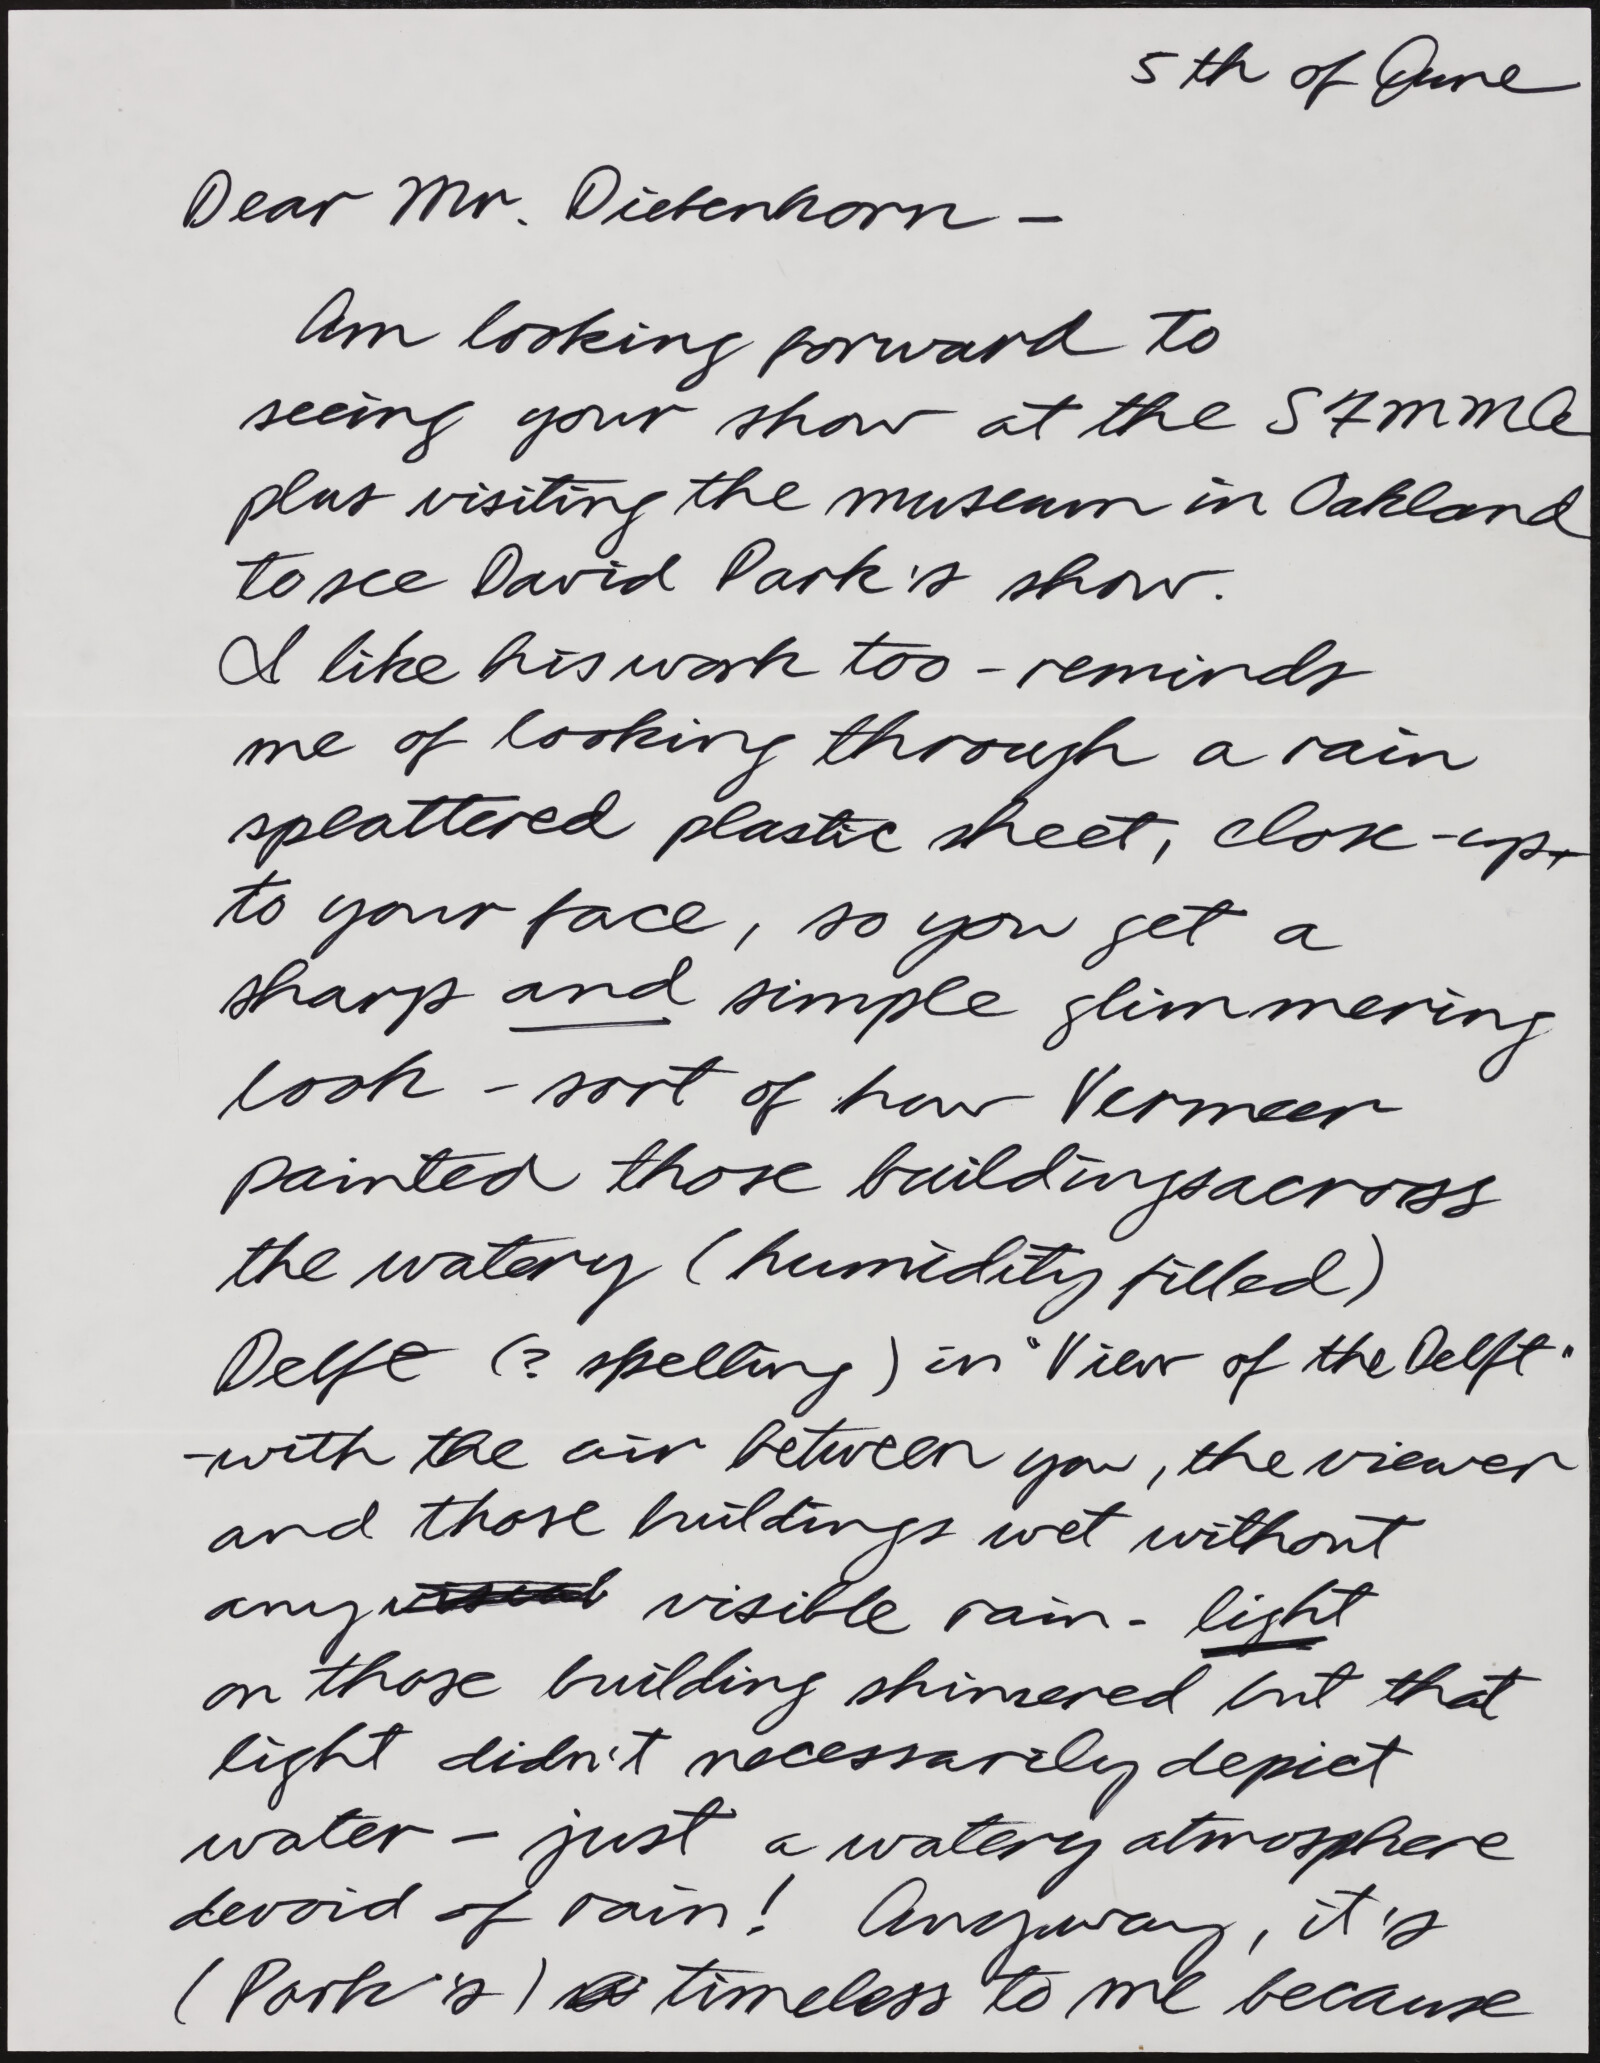 5th of June
Dear Mr. Diebenhorn —
Am looking forward to
seeing your show at the SFMMA
plus visiting the museum in Oakland
to see David Park's show.
I like his work too - reminds
me of looking through a rain
splattered plastic sheet, close-up
to your face, so you get a
sharp and simple glimmering
look - sort of how Vermeer
painted those buildings across
the watery (humidity filled)
Delft (? spelling) in "View of the Delft"
-with the air between you, the viewer
and those buildings wet without
any visible rain - light
on those building shimered but that
light didn't necessarily depict
water - just a watery atmosphere
devoid of rain! Anyway, it's
(Park's) timeless to me because